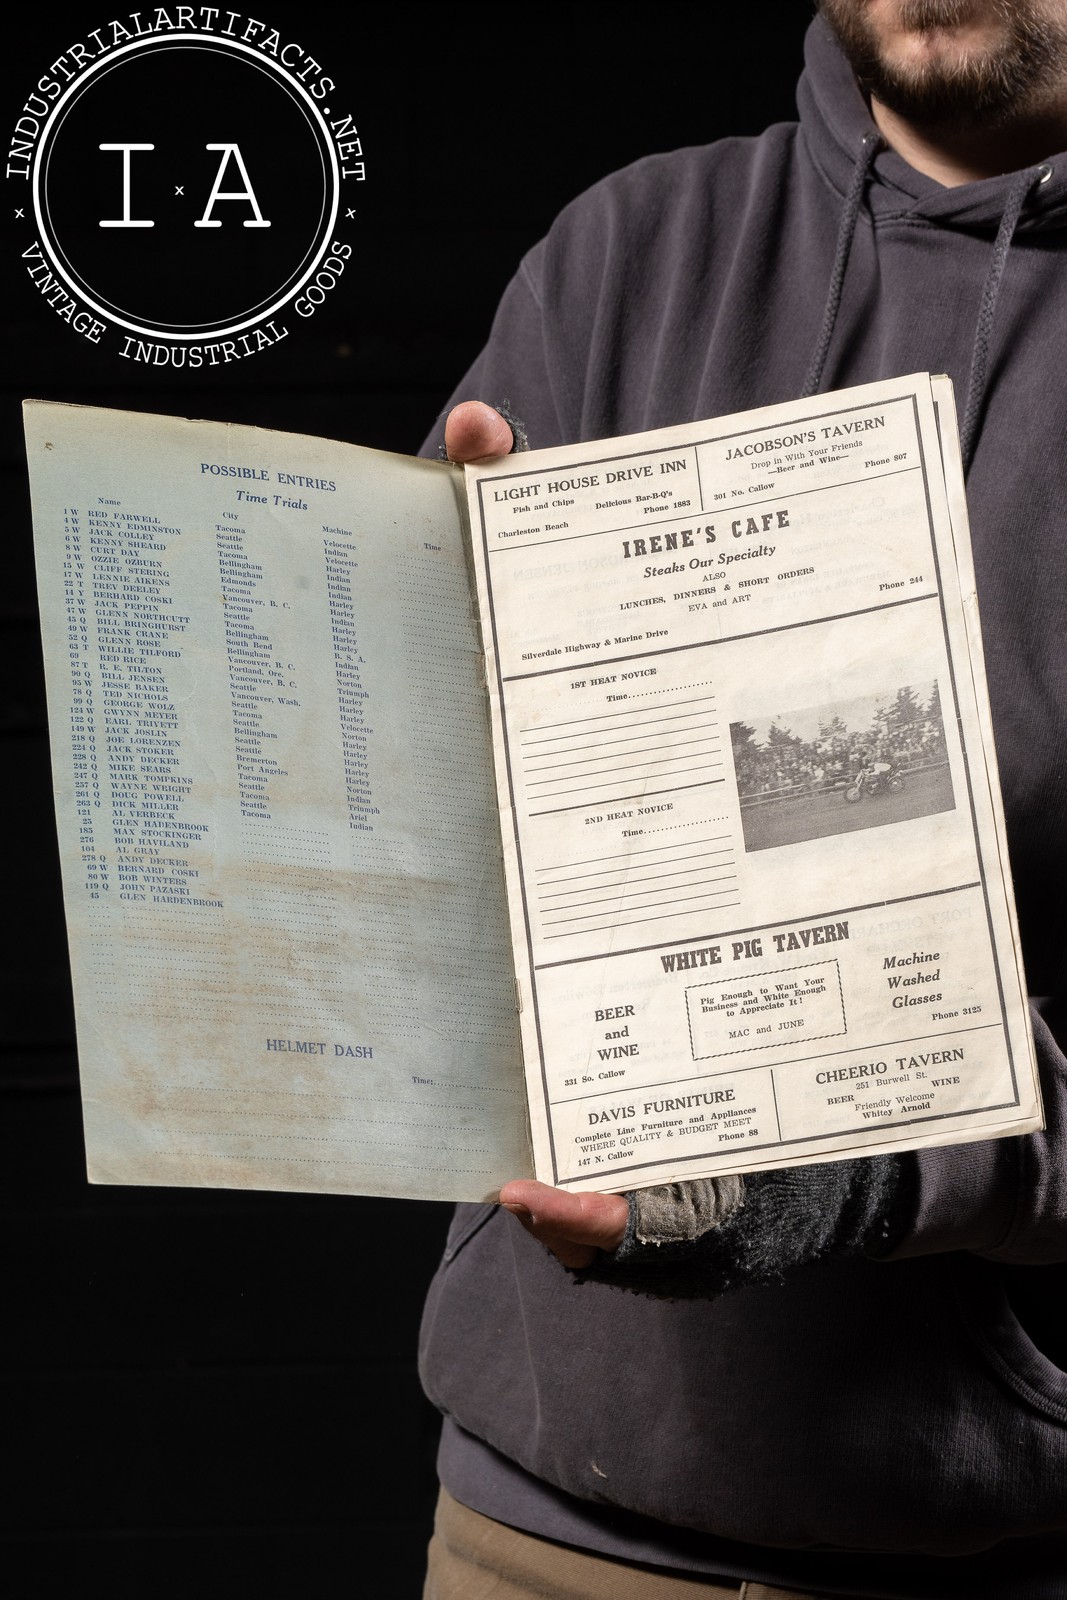 INDUSTRIALARTIFACTS.NET
I x A
x x
VINTAGE INDUSTRIAL GOODS
POSSIBLE ENTRIES
Time Trials
Name
1 W RED FARWELL
4 W KENNY EDMINSTON
5 W JACK COLLEY
6 W KENNY SHEARD
8 W CURT DAY
9 W OZZIE OZBURN
15 W CLIFF STERING
17 W LENNIE AIKENS
22 T TREY DEELEY
14 Y BERHARD COSKI
37 W JACK PEPPIN
47 W GLENN NORTHCUTT
45 Q BILL BRINGHURST
49 W FRANK CRANE
52 Q GLENN ROSE
63 T WILLIE TILFORD
69 RED RICE
87 T R. E. TILTON
90 Q BILL JENSEN
95 W JESSE BAKER
78 Q TED NICHOLS
99 Q GEORGE WOLZ
124 W GWYNN MEYER
122 Q EARL TRIVETT
149 W JACK JOSLIN
218 Q JOE LORENZEN
224 Q JACK STOKER
228 Q ANDY DECKER
242 Q MIKE SEARS
247 Q MARK TOMPKINS
257 Q WAYNE WRIGHT
261 Q DOUG POWELL
263 Q DICK MILLER
121 AL VERBECK
25 GLEN HADENBROOK
185 MAX STOCKINGER
276 BOB HAVILAND
104 AL GRAY
278 Q ANDY DECKER
69 W BERNARD COSKI
80 W BOB WINTERS
119 Q JOHN PAZASKI
45 GLEN HARDENBROOK
City
Tacoma
Seattle
Seattle
Tacoma
Bellingham
Bellingham
Edmonds
Tacoma
Vancouver, B. C.
Tacoma
Seattle
Tacoma
Bellingham
South Bend
Bellingham
Vancouver, B. C.
Portland, Ore.
Vancouver, B. C.
Seattle
Vancouver, Wash.
Seattle
Tacoma
Seattle
Bellingham
Seattle
Seattle
Bremerton
Port Angeles
Tacoma
Seattle
Tacoma
Seattle
Tacoma
Machine
Velocette
Indian
Velocette
Harley
Indian
Harley
Indian
Harley
Harley
Indian
Harley
Harley
B. S. A.
Indian
Harley
Norton
Triumph
Harley
Harley
Harley
Velocette
Norton
Harley
Harley
Harley
Harley
Norton
Indian
Triumph
Ariel
Indian
Time
HELMET DASH
Time:
LIGHT HOUSE DRIVE INN
Fish and Chips Delicious Bar-B-Q's
Charleston Beach Phone 1883
JACOBSON'S TAVERN
Drop in With Your Friends
—Beer and Wine—
301 No. Callow Phone 807
IRENE'S CAFE
Steaks Our Specialty
ALSO
LUNCHES, DINNERS & SHORT ORDERS
EVA and ART
Silverdale Highway & Marine Drive Phone 244
1ST HEAT NOVICE
Time
2ND HEAT NOVICE
Time
WHITE PIG TAVERN
BEER
and
WINE
331 So. Callow
Pig Enough to Want Your
Business and White Enough
to Appreciate It!
MAC and JUNE
Machine
Washed
Glasses
Phone 3125
DAVIS FURNITURE
Complete Line Furniture and Appliances
WHERE QUALITY & BUDGET MEET
147 N. Callow Phone 88
CHEERIO TAVERN
251 Burwell St.
BEER WINE
Friendly Welcome
Whitey Arnold